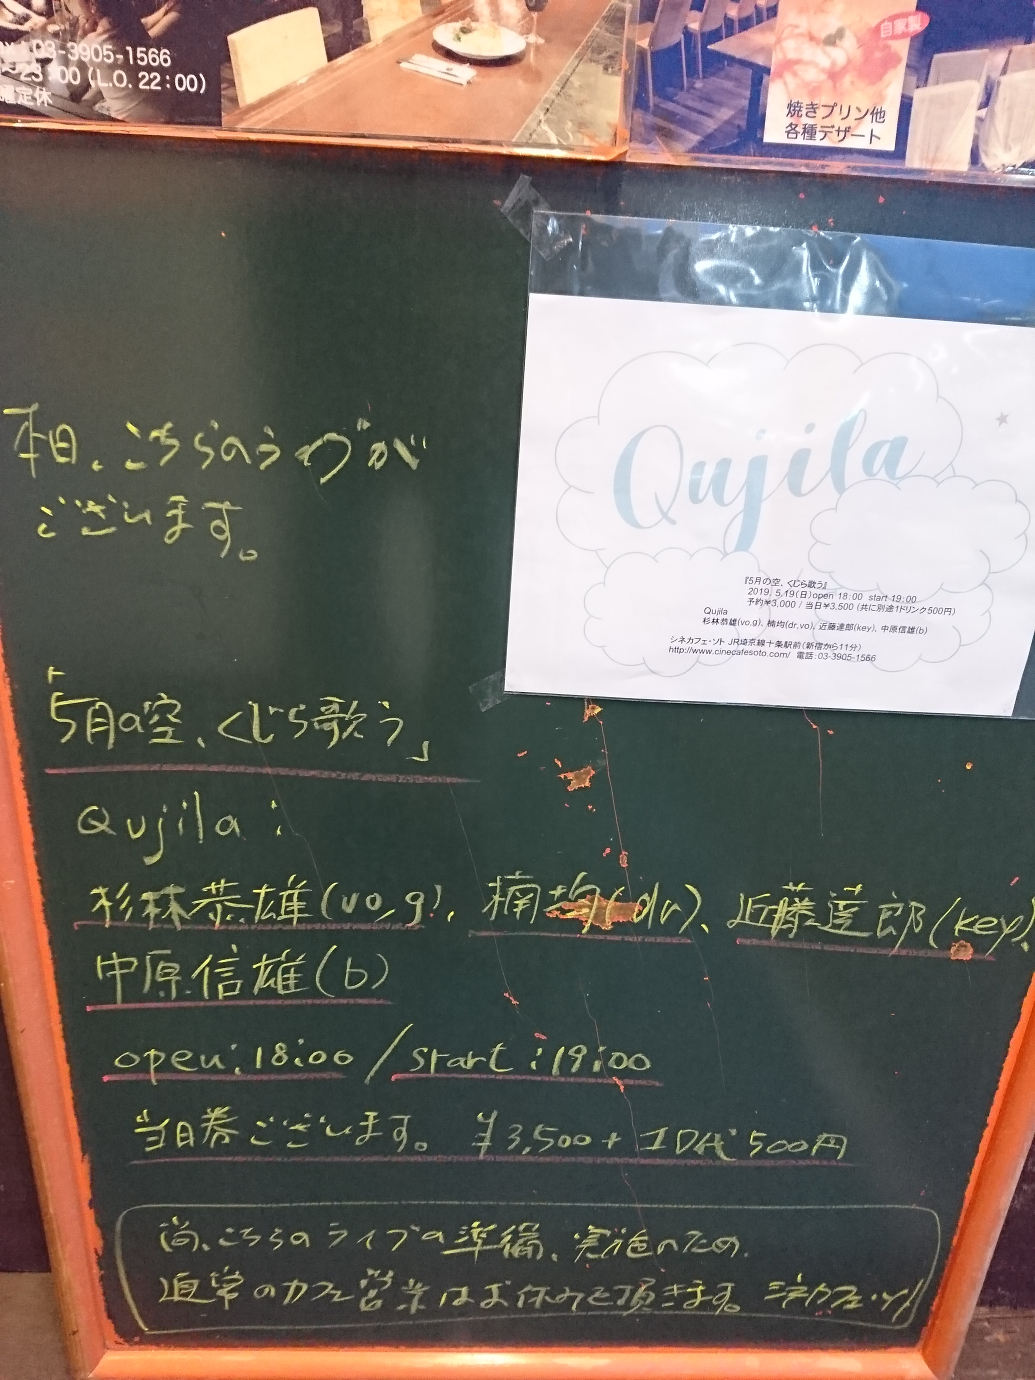 03-3905-1566
23:00 (L.O. 22:00)
曜定休
自家製
焼きプリン他
各種デザート
Qujila
『5月の空、くじら歌う』
2019, 5,19(日)open 18:00 start 19:00
予約¥3,000 / 当日¥3,500 (共に別途1ドリンク500円)
Qujila
杉林恭雄(vo,g)、楠均(dr,vo)、近藤達郎(key)、中原信雄(b)
シネカフェ・ソト JR埼京線十条駅前(新宿から11分)
http://www.cinecafesoto.com/ 電話:03-3905-1566
本日、こちらのライブが
ございます。
「5月の空、くじら歌う」
Qujila:
杉林恭雄(vo,g)、楠均(dr)、近藤達郎(key)、
中原信雄(b)
open:18:00/start:19:00
当日券ございます。 ¥3,500+1D代500円
尚、こちらのライブの準備、実施のため、
通常のカフェ営業はお休みを頂きます。 シネカフェ・ソト